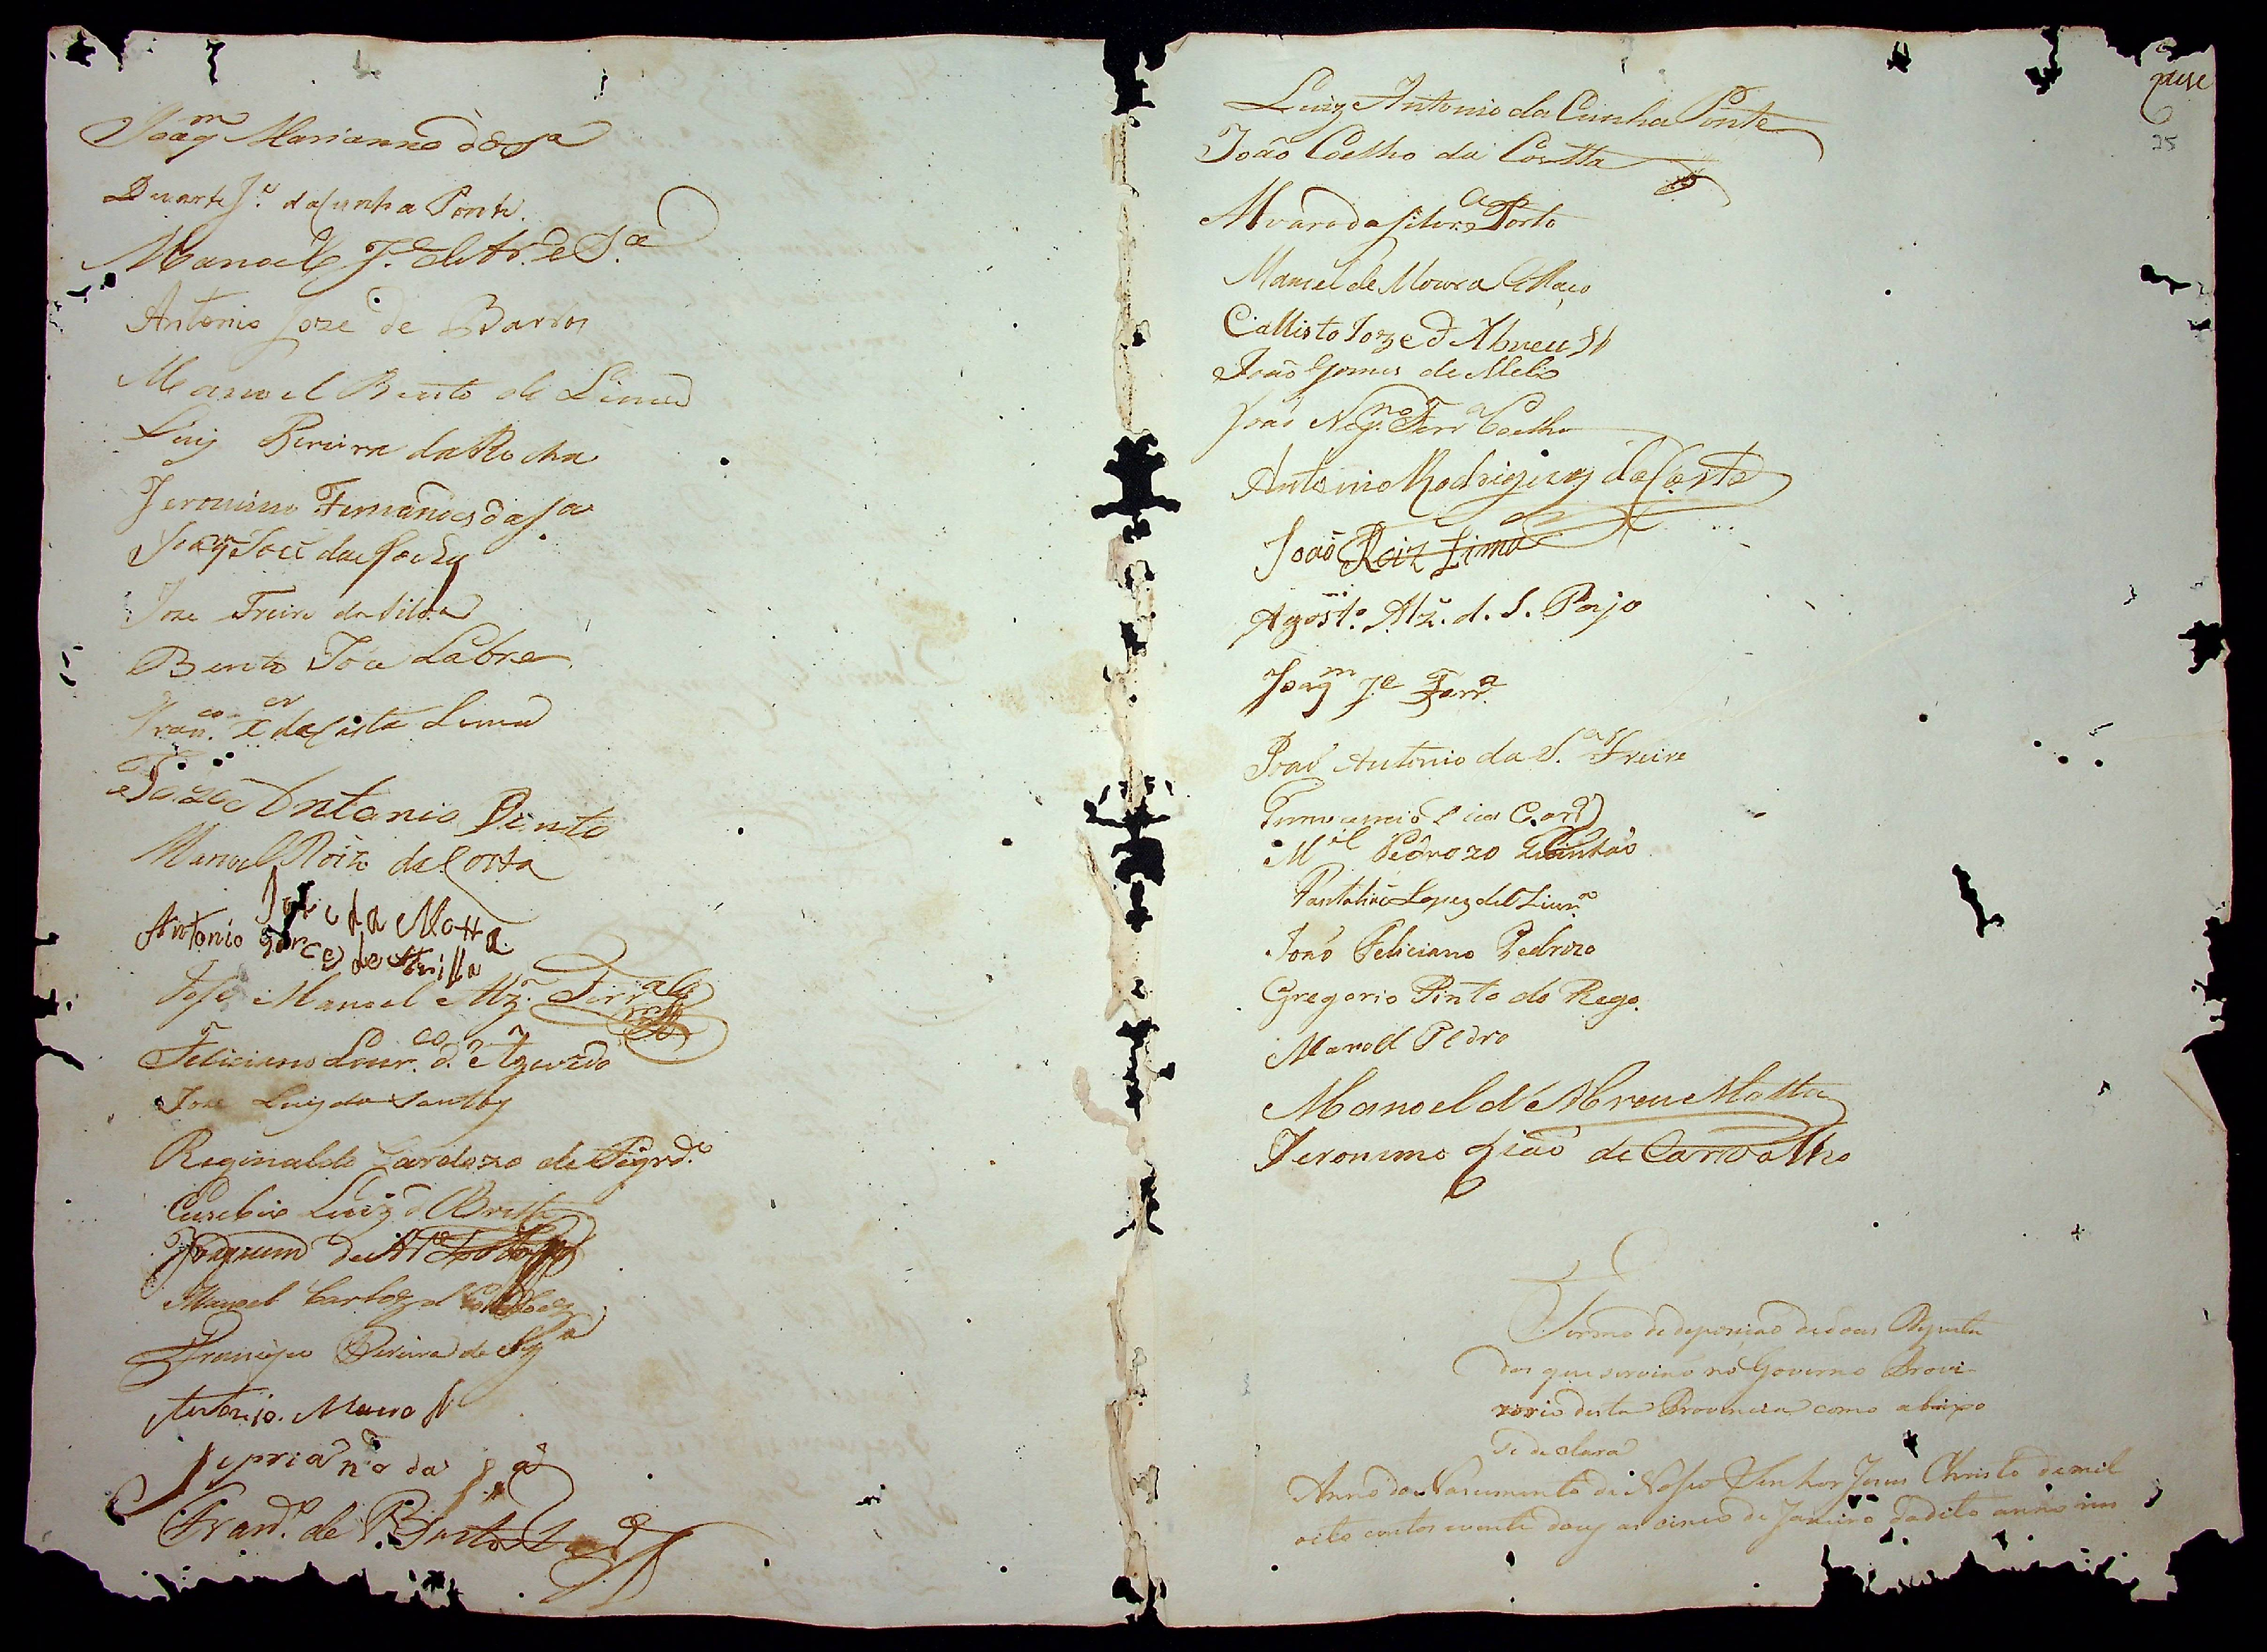 Joaqm Marianno de Sa
Duarte Je da Cunha Ponte.
Manoel Je de Ar.e S.a
Antonio Joze de Barros
Manoel Bento de Lima
Luiz Pereira da Rocha
Jeronimo Fernandes da Sa
Joaqm José da Rocha
Joze Freire da Silva
Bento Joze Labre
Franco. Xer da Costa Lima
Joze Antonio Pinto
Manoel Roiz da Costa
José da Motta
Antonio Garces de
José Manoel Alz. Ferra
Feliciano Lourco. d. Azevedo
Joze Luiz dos Santos
Reginaldo Cardozo de
Euzebio Luiz d Britto
Joaquim de
Manoel Carlos d
Francisco Pereira de
Antonio. Mauro
Sipriano da Sa
Frando. de P. Bastos
Luiz Antonio da Cunha Ponte
João Coelho da Costta
Alvaro da Silva Porto
Manoel de Moura
Callisto Joze d Abreu
João Gomes de Mello
João Nepno Ferra Coelho
Antonio Rodrigues da Costa
João Roiz Lima
Agosto. Alz. d. S. Porjo
Joaqm Je Ferra.
João Antonio da S.a Freire
Card
Mel Pedrozo Quintão
Pantalião Lopez de Livra
João Feliciano Pedrozo
Gregorio Pinto do Rego.
Manoel Pedro
Manoel d' Abreu Motta
Jeronimo Gião de Carvalho
25
Termo de deposição de dous Deputa
dos que servirão no Governo Provi-
zorio desta Provincia como abaixo
se declara
Anno do Nascimento de Nosso Senhor Jesus Christo de mil
oito centos evente dous aos cinco de Janeiro do dito anno